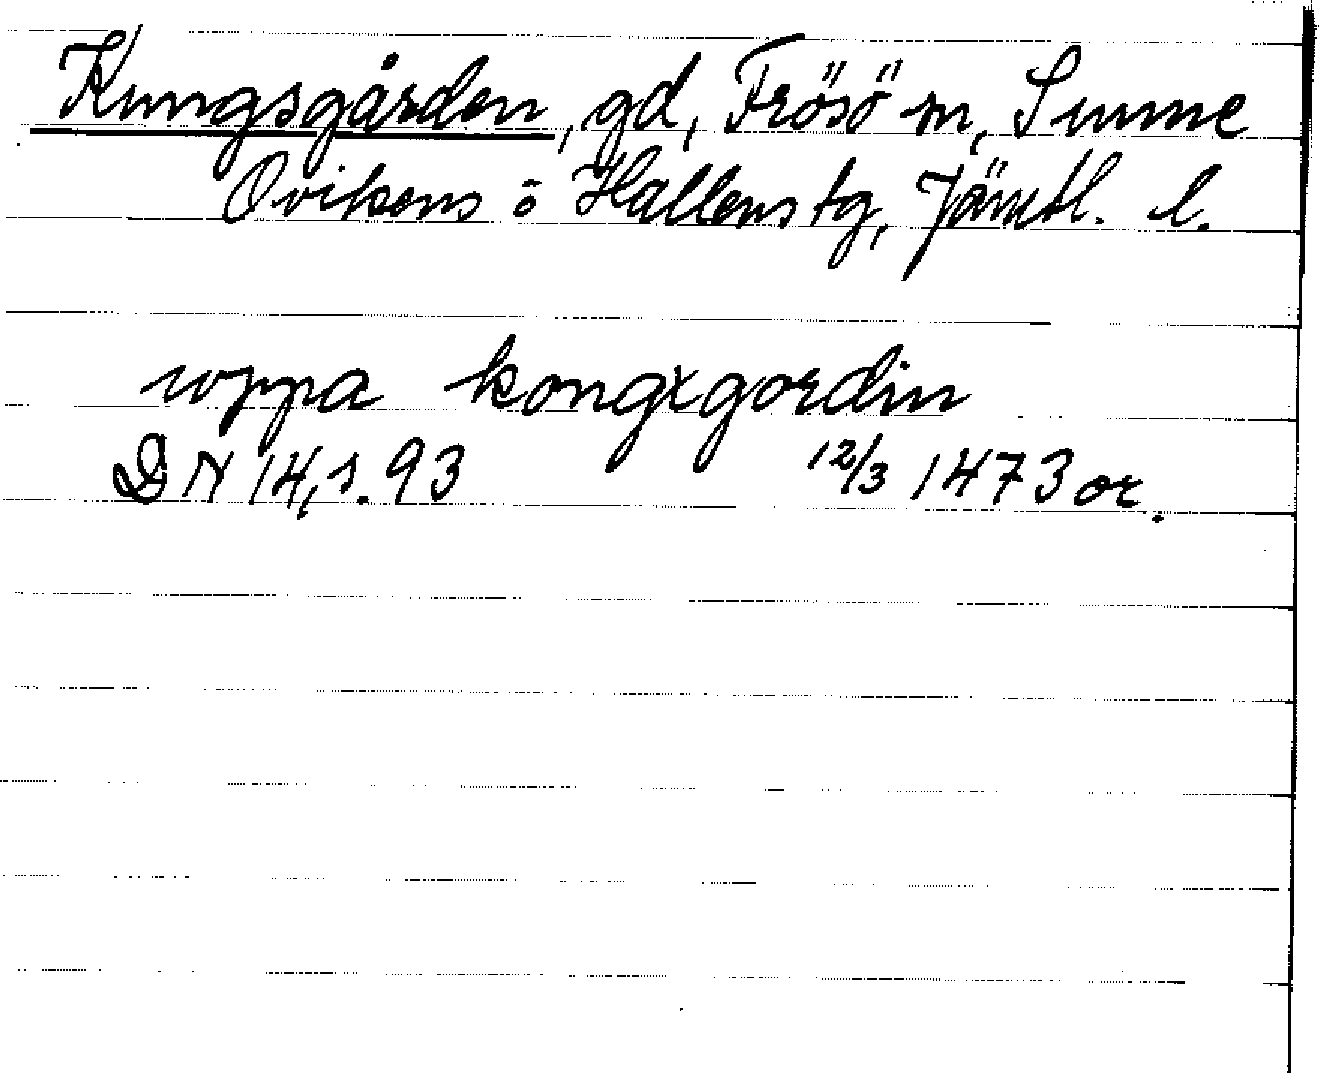 Kungsgården, gd, Frösö sn, Sunne
Ovikens o Hallens tg, Jämtl. l.
uoppa kongxgordin
DN 14, s. 93 12/3 1473 or.